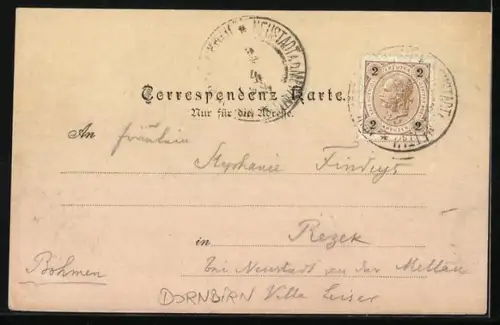 NEUSTADT A.D. METTAU
Correspondenz-Karte.
Nur für die Adresse.
2 2
2 2
An Fräulein
Stephanie
in Rezek
bei Neustadt an der Mettau
Böhmen
DORNBIRN Villa